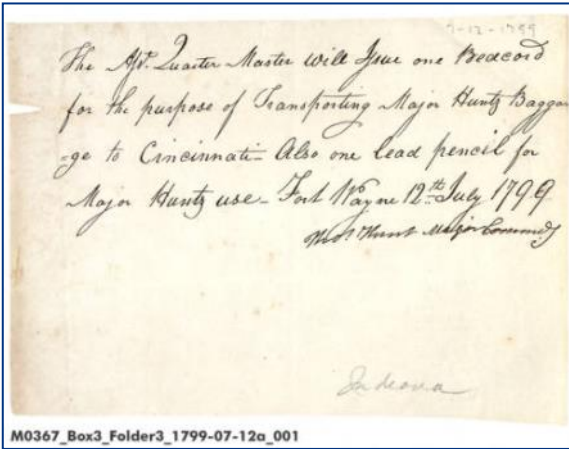 7-12-1799
The Asst. Quarter Master will Issue one Bedcord
for the purpose of Transporting Major Hunts Bagga
-ge to Cincinnati - Also one lead pencil for
Major Hunts use - Fort Wayne 12th July 1799
Thos Hunt Major Commdg
Indiana
M0367_Box3_Folder3_1799-07-12a_001